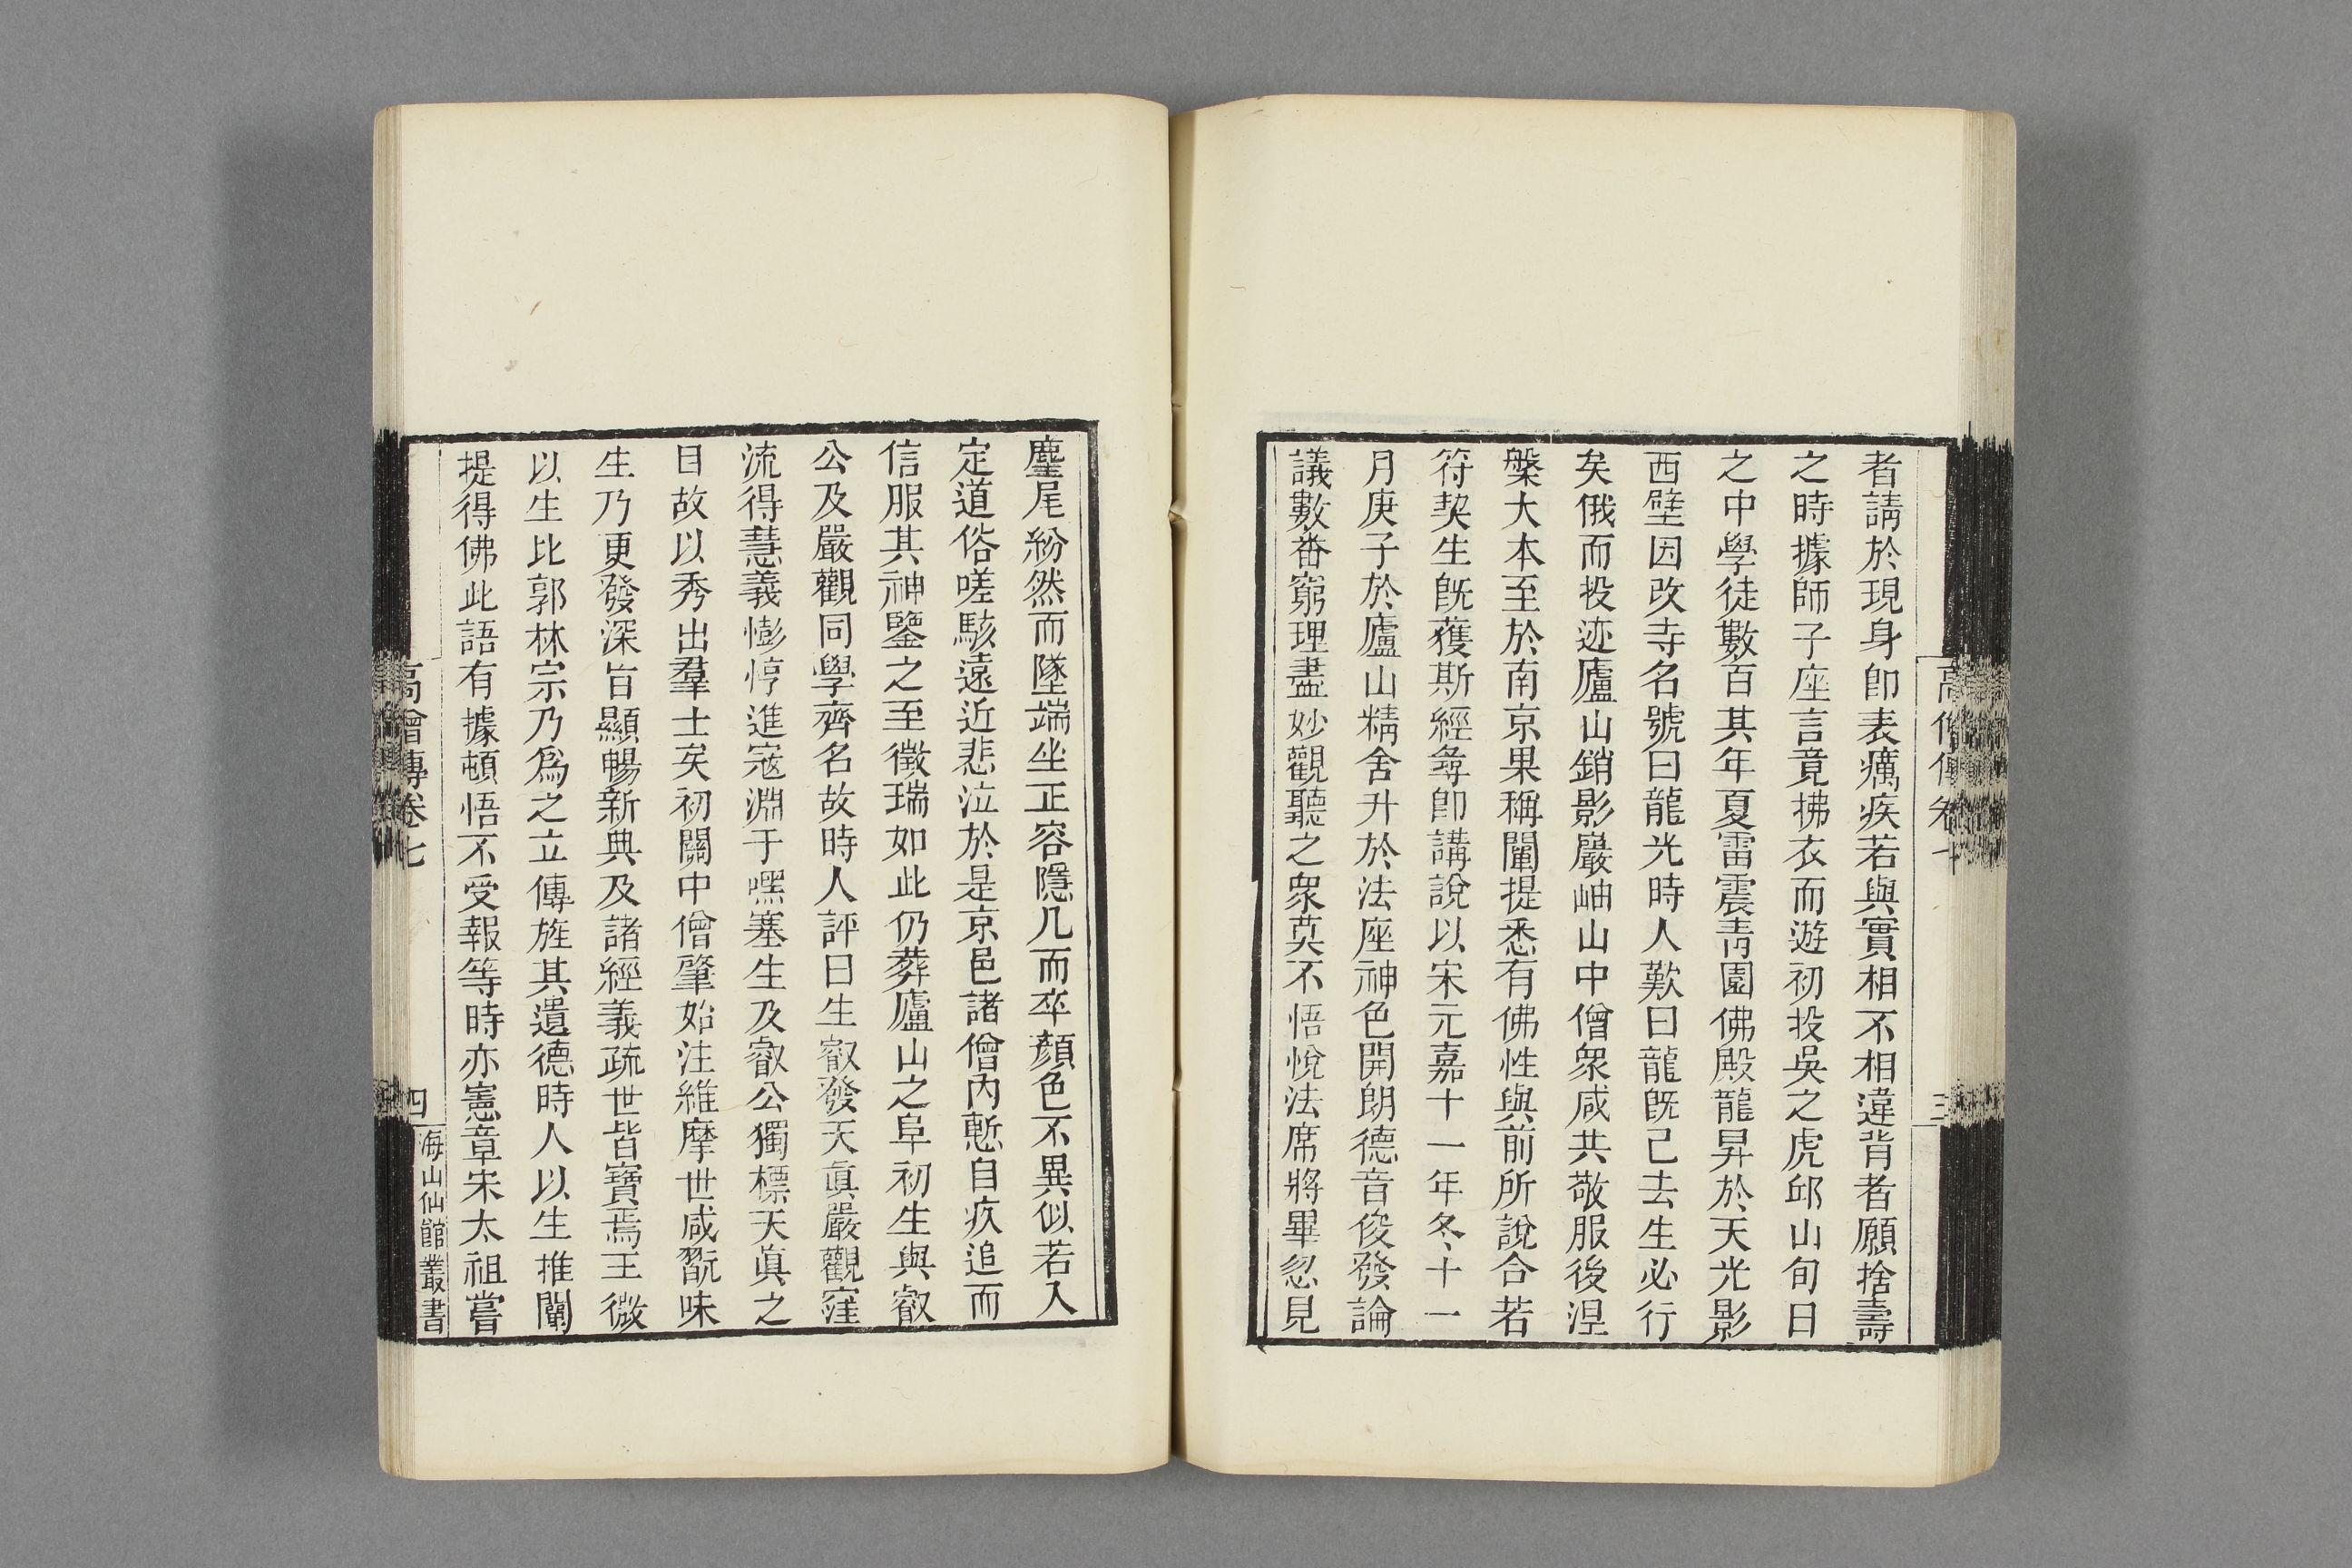 者請於現身即表癘疾若與實相不相違背者願捨壽
之時據師子座言竟拂衣而遊初投吳之虎邱山旬日
之中學徒數百其年夏雷震青園佛殿龍昇於天光影
西壁因改寺名號曰龍光時人歎曰龍旣已去生必行
矣俄而投迹廬山銷影巖岫山中僧眾咸共敬服後涅
槃大本至於南京果稱闡提悉有佛性與前所說合若
符契生旣獲斯經尋即講說以宋元嘉十一年冬十一
月庚子於廬山精舍升於法座神色開朗德音俊發論
議數番窮理盡妙觀聽之眾莫不悟悅法席將畢忽見
高僧傳卷
三
麈尾紛然而墜端坐正容隱几而卒顏色不異似若入
定道俗嗟駭遠近悲泣於是京邑諸僧內慙自疚追而
信服其神鑒之至徵瑞如此仍葬廬山之阜初生與叡
公及嚴觀同學齊名故時人評曰生叡發天眞嚴觀窪
流得慧義憉悙進寇淵于嘿塞生及叡公獨標天眞之
目故以秀出羣士矣初關中僧肇始注維摩世咸翫味
生乃更發深旨顯暢新典及諸經義疏世皆寶焉王微
以生比郭林宗乃爲之立傳旌其遺德時人以生推闡
提得佛此語有據頓悟不受報等時亦憲章宋太祖嘗
高僧傳卷七
四
海山仙館叢書